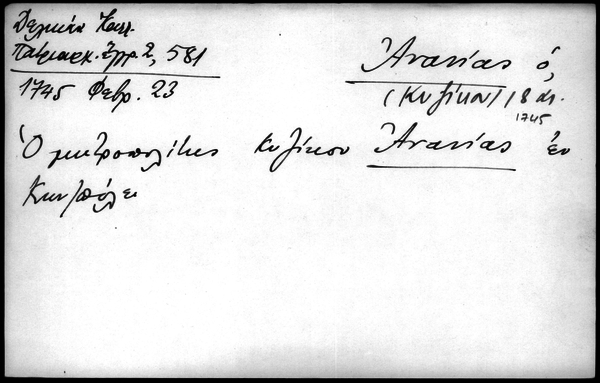 Δελικάνη Καλλ.
Πατριαρχ. Ἔγγρ. 2, 581
1745 Φεβρ. 23
Ἀνανίας ὁ,
(Κυζίκου) 18 αι.
1745
Ὁ μητροπολίτης Κυζίκου Ἀνανίας ἐν
Κων/πόλει